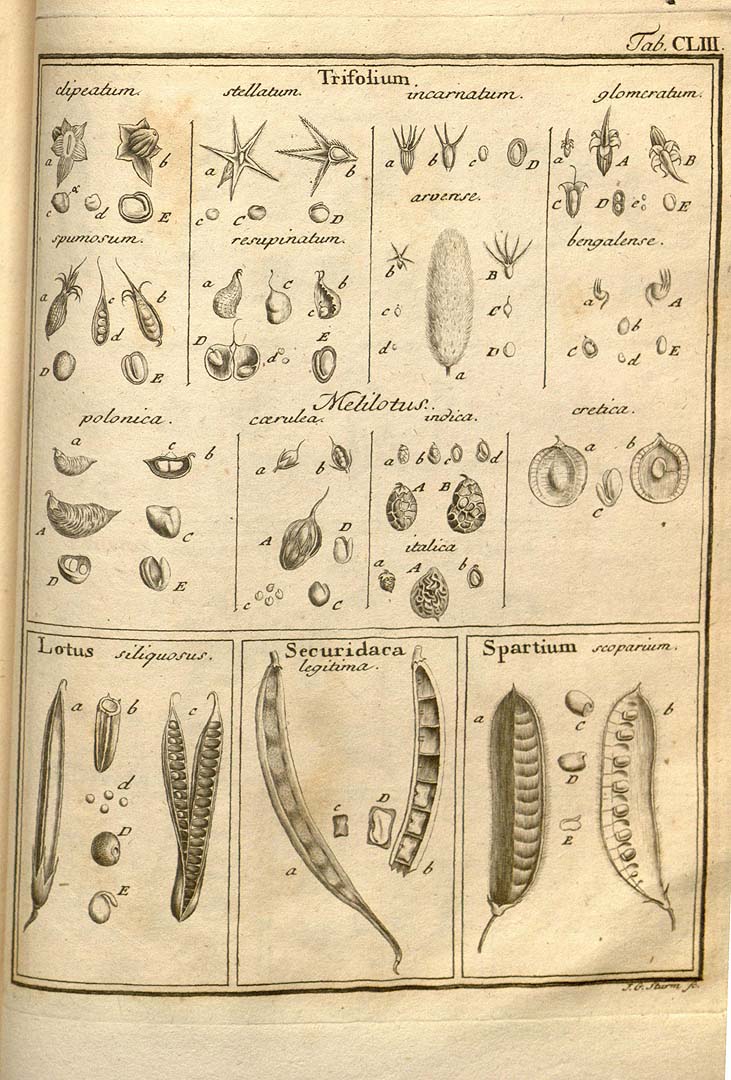 Tab. CLIII.
Trifolium
clipeatum. stellatum. incarnatum. glomeratum.
a b a b a b c D a A B
α
c d E c C D C D e E
arvense.
spumosum. resupinatum. bengalense.
a c b a C b b B a A
d c c C b
D E D d E d D C d E
a
Melilotus.
polonica. cærulea. indica. cretica.
a c b a b a b c d a b
A C A D A B C
italica
D E c C a A b
Lotus siliquosus. Securidaca Spartium scoparium.
legitima.
a b c a c D b a C b
d D
D E
E
J. G. Sturm sc.